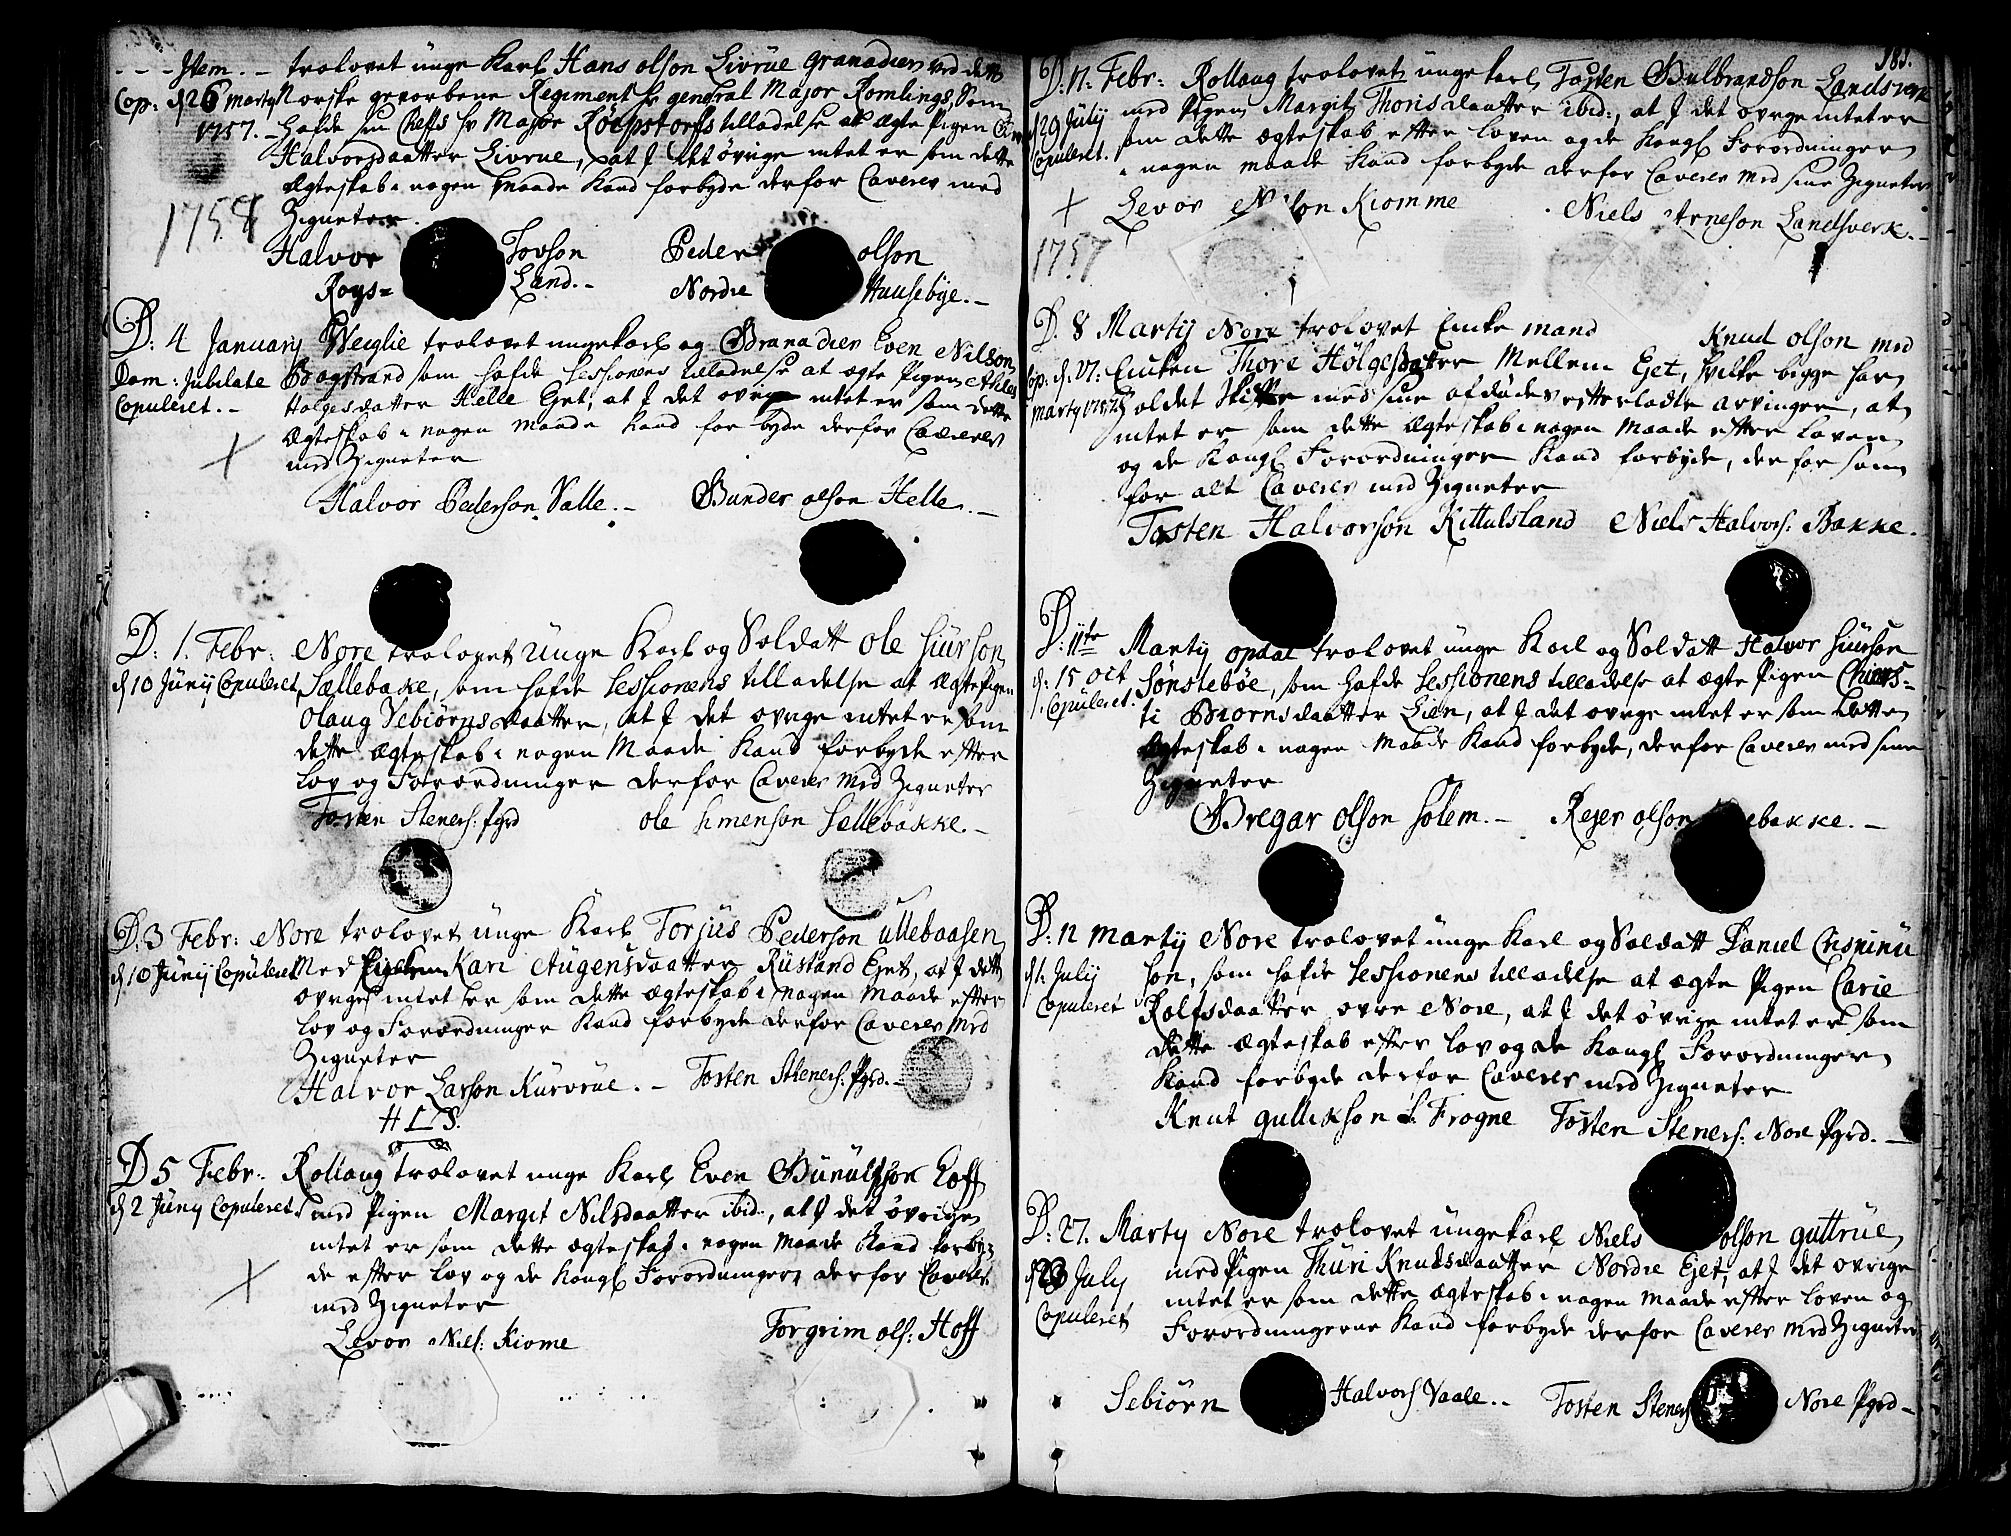 - - - Item. - trolovet unge Karl Hans olson Livrüe granadier ved dett
Cop: d 26 Marty Norske gevorbene Regiment hr general Major Romlings, Som
1757. - hafde sin Cheffs hr Major Röepstorfs tilladelse at ægte Pigen
Halvorsdaatter Livrue, at J det øvrige intet er som dette
ægteskab i nogen maade kand forbyde derfor Caverer med
1757 Zigneter.
Halvor Tovson Peder olson
Roys= Land. - Nordre Huusebÿe. -
D: 4 January Weiglie trolovet ungekarl og Granadier Even Nilson
Dom: Jubilate Bogstrand som hafde Sessionens tilladelse at ægte Pigen
Copuleret. - Holgesdaatter Helle Eÿet, at J det øvrige intet er som dette
ægteskab i nogen maade kand forbyde derfor Caverer
med Zigneter
Halvor Pederson Salle. - Gunder olson Helle. -
D: 1. Febr: Nore trolovet Unge Karl og Soldatt ole Siurson
d 10 Junij Copuleret, Sællebake, som hafde Sessionens tilladelse at ægte Pigen
Olaug Vebiörnsdaatter, at J det øvrige intet er som
dette ægteskab i nogen Maade kand forbyde efter
Lov og Forordninger derfor Caverer med Zigneter
Tosten Steners: Pgrd ole Simenson Sellebakke. -
D. 3 Febr: Nore trolovet unge Karl Torjüs Pederson ullebaasen
d 10 Junij Copuleret Med Pigen Kari Augensdaatter Rüstand Eÿet, at J dett
øvrige intet er som dette ægteskab i nogen Maade efter
Lov og Forordninger kand forbyde derfor Caverer med
Zigneter
Halvor Larson Kürvrüe. - Tosten Steners: Pgrd. -
H L S.
D 5 Febr: Rollaug trolovet unge Karl Even Gunulfson Hoff
d 2 Juny Copuleret. med Pigen Margit Nilsdaatter ibid:, at J det øvrige
intet er som dette ægteskab i nogen maade kand forby=
de efter Lov og de Kongl Forordninger derfor Caverer
med Zigneter
Levor Niels: Kiome Torgrim ols: Hoff
181.
D: 17. Febr: Rollaug trolovet ungekarl Tosten Gulbrandson Landsverk
d 29 Julij med Pigen Margit Thorisdaatter ibid:, at J det øvrige intet er
Copuleret. som dette ægteskab efter loven og de Kongl Forordninger
i nogen maade kand forbyde derfor Caverer med sine Zigneter
Levor Kiomme Niels Arneson Landsverk. -
1757
D. 8 Martij Nore trolovet Encke mand Knud olson med
Cop: d. 17: Encken Thore Hölgesdatter Mellem Eÿet, hvilke begge har
Marty 1757 holdet skifte med sine afdødes efterladte arvinger, at
intet er som dette ægteskab i nogen maade efter loven
og de Kongl Forordninger kand forbyde, derfor som
for alt Caverer med Zigneter
Tosten Halvorson Kittulsland Niels Halvors: Bakke.
D: 11te Martij opdal trolovet unge Karl og Soldatt Halvor Siurson
d: 15 oct Sönsteböe, som hafde Sessionens tilladelse at ægte Pigen Chirs=
Copuleret. ti Biörnsdaatter Lien, at J det øvrige intet er som dette
ægteskab i nogen maade kand forbyde, derfor Caverer med sine
Zigneter
Gregar olson Solem. - Rejer olson ebakke. -
D: 12 Martij Nore trolovet unge Karl og Soldatt Daniel Crispinu
d 1. Julij son, som hafde Sessionens tilladelse at ægte Pigen Carie
Copuleret Rolfsdaatter øvre Nore, at J det øvrige intet er som
dette ægteskab efter lov og de Kongl Forordninger
kand forbyde derfor Caverer med Zigneter
Knut gullikson S. Frogne Tosten Steners: Nore Pgrd. -
D: 27. Marty Nore trolovet ungekarl Niels olson guttrüe
d 23 July med Pigen Thuri Knudsdaatter Nordre Eÿet, at J det øvrige
Copuleret intet er som dette ægteskab i nogen maade efter loven og
Forordningerne kand forbyde derfor Caverer med Zigneter
Sebiörn Halvors Vaale. - Tosten Steners Nore Pgrd -